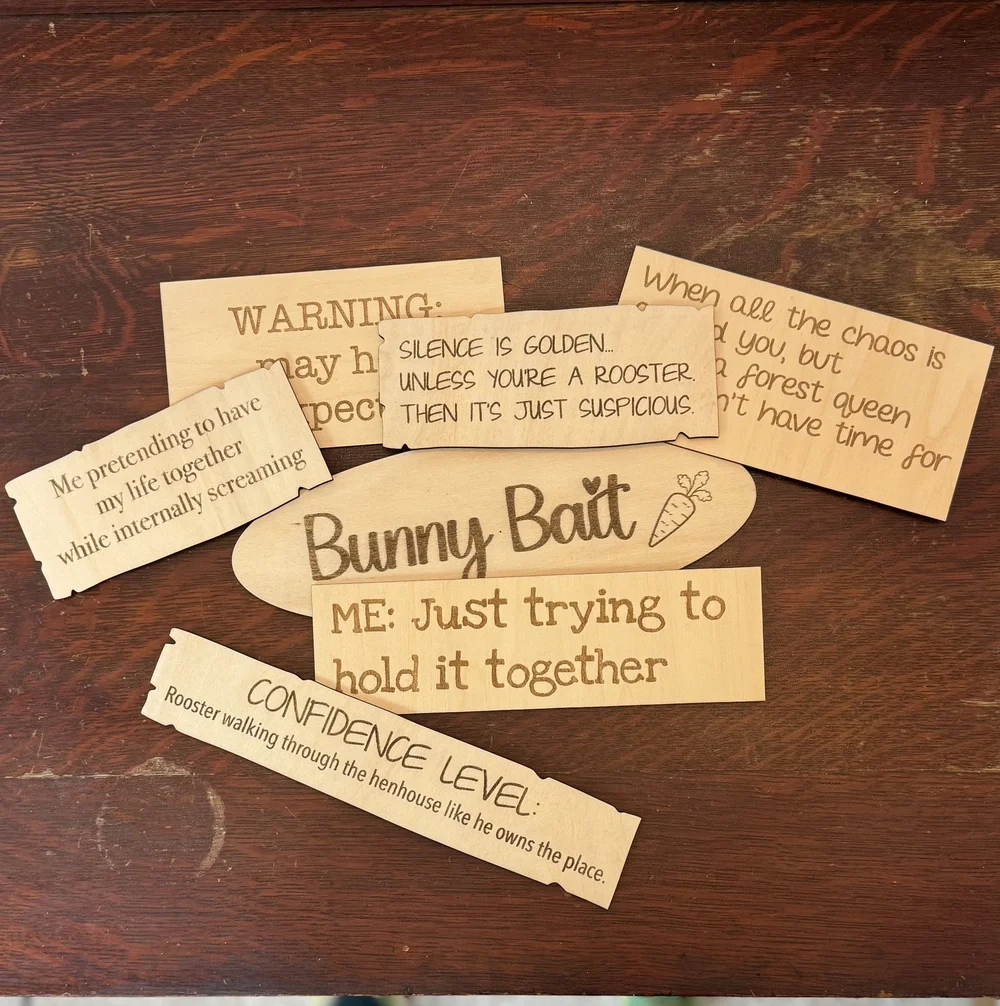 WARNING:
may
When all the chaos is
you, but
a forest queen
have time for
SILENCE IS GOLDEN...
UNLESS YOU'RE A ROOSTER.
THEN IT'S JUST SUSPICIOUS.
Me pretending to have
my life together
while internally screaming
Bunny Bait
ME: Just trying to
hold it together
CONFIDENCE LEVEL:
Rooster walking through the henhouse like he owns the place.